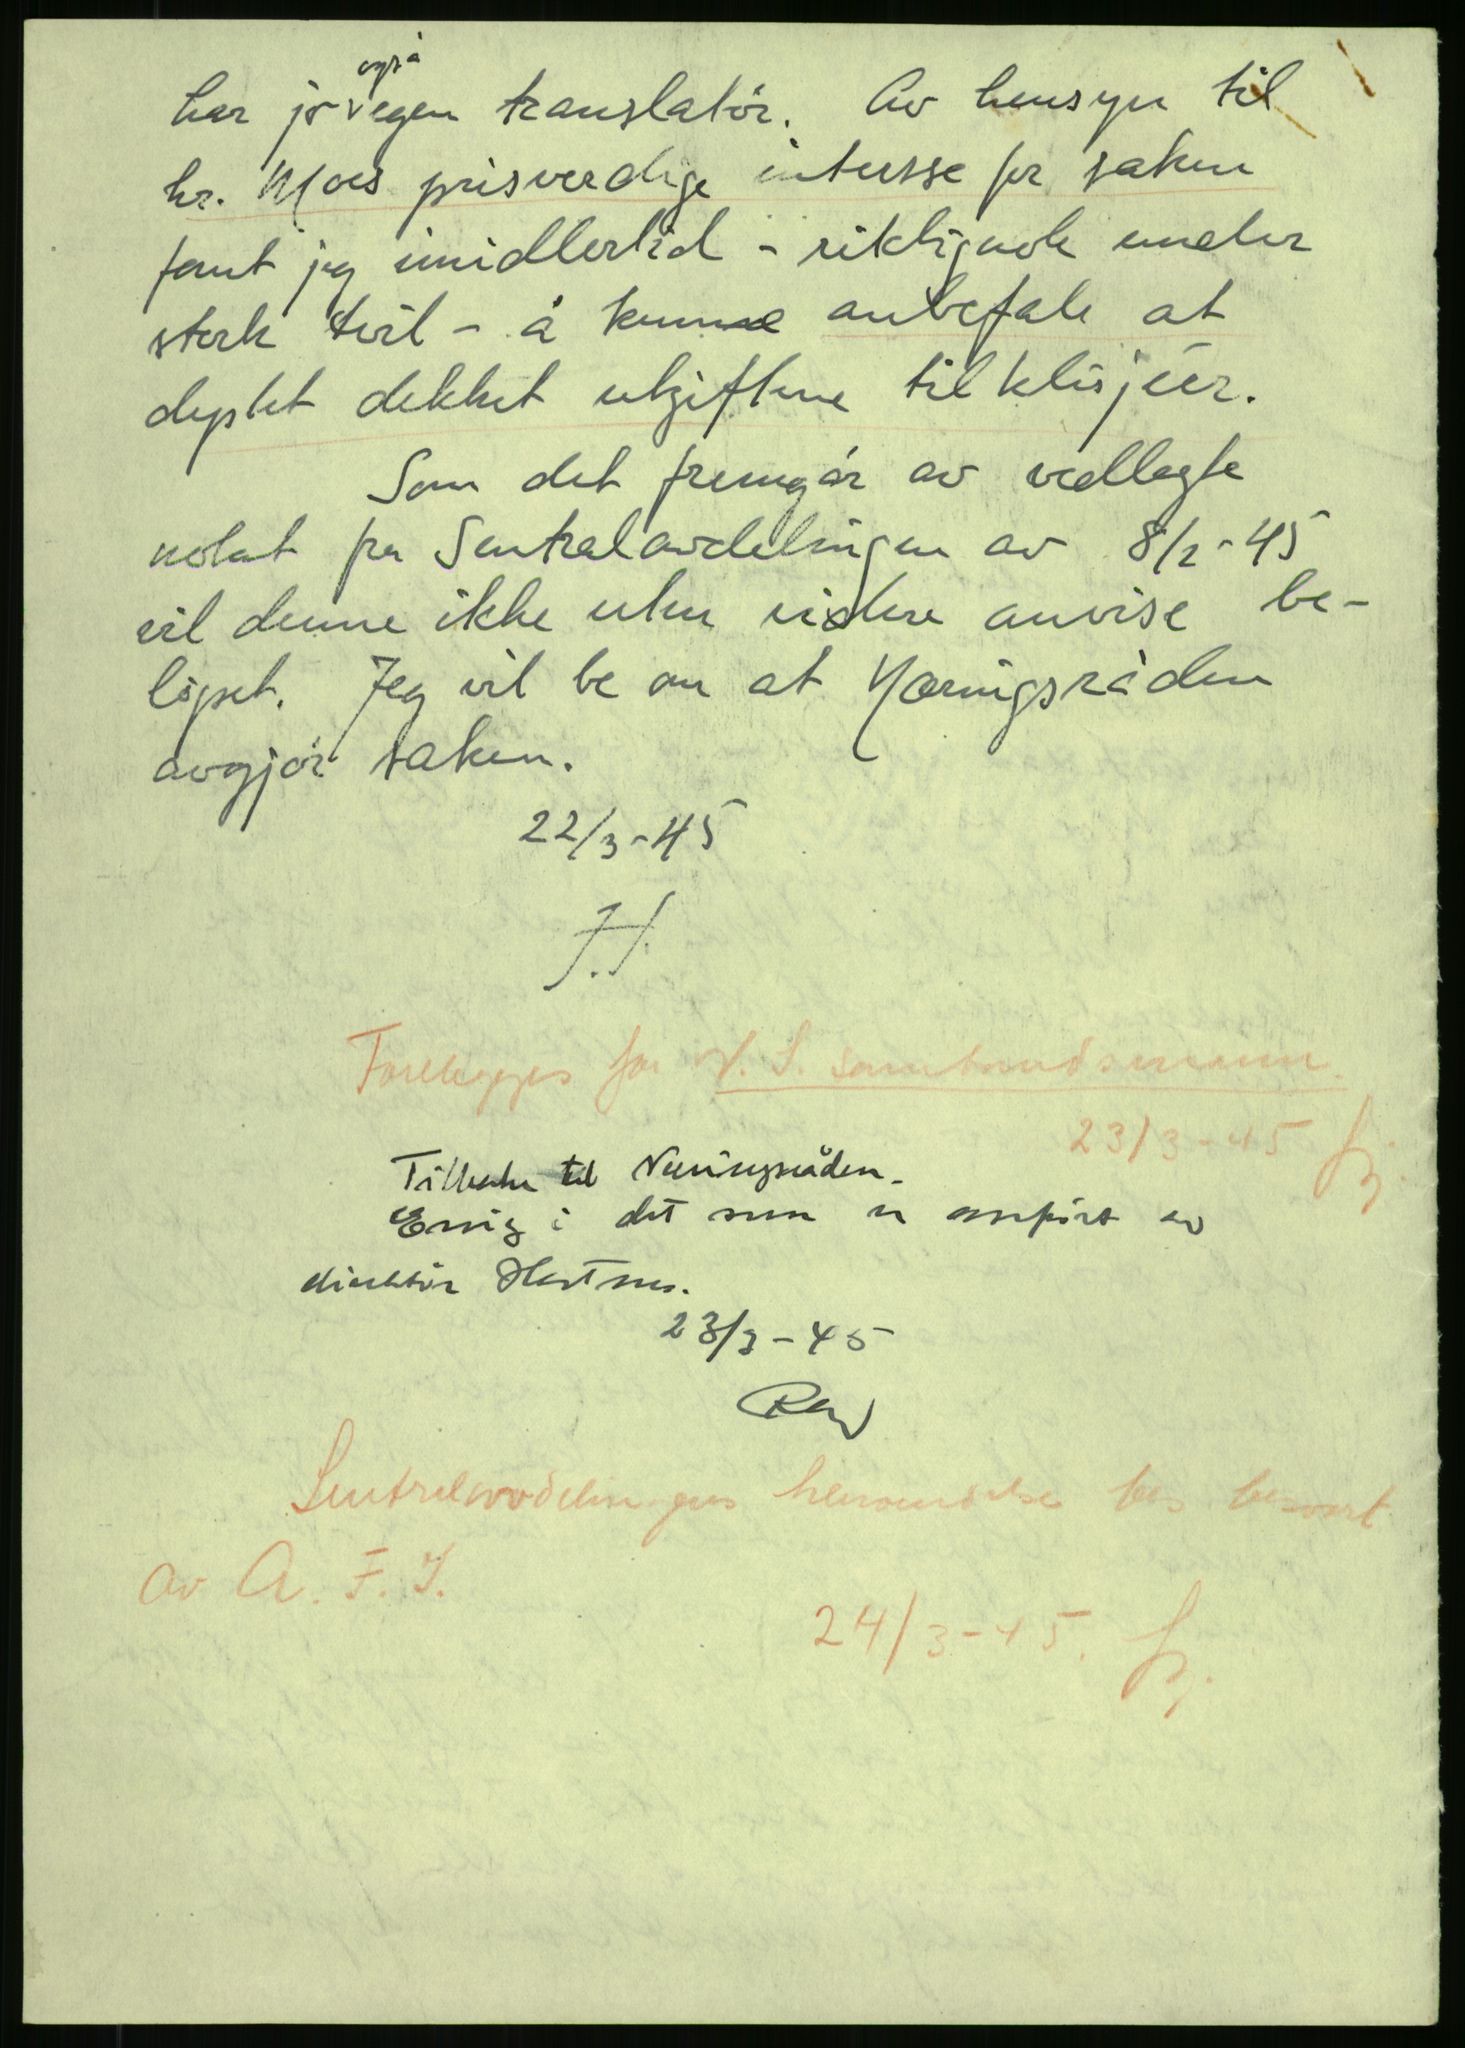 har jo også egen translatør. Av hensyn til
hr. Moes prisverdige interesse for saken
fant jeg imidlertid - riktignok under
sterk tvil - å kunne anbefale at
dep'tet dekket utgiftene til klisjéer.
Som det fremgår av vedlagte
notat fra Sentralavdelingen av 8/2-45
vil denne ikke uten videre anvise be-
löpet. Jeg vil be om at Næringsråden
avgjör saken.
22/3-45
H.
Forelegges for N. S. sambandsmann.
23/3-45
Tilbake til Næringsråden.
Enig i det som er anfört av
direktör
23/3-45
Sentralavdelingens henvendelse bes besvart
av A. F. I.
24/3-45.